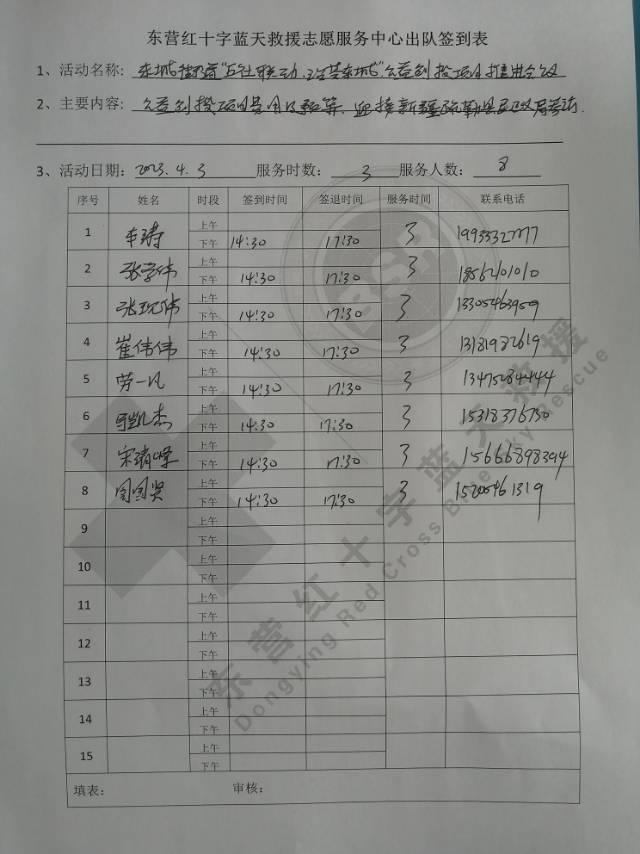 东营红十字蓝天救援志愿服务中心出队签到表
1、活动名称: 东城街道"五社联动、 东城"公益创投项目推进会议
2、主要内容: 公益创投项目费用及 等, 迎接新疆疏勒县民政局
3、活动日期: 2023.4.3 服务时数: 3 服务人数: 8
序号 姓名 时段 签到时间 签退时间 服务时间 联系电话
1 车涛 上午 下午 14:30 17:30 3
2 张学伟 上午 下午 14:30 17:30 3 18562101010
3 张现伟 上午 下午 14:30 17:30 3 13305463959
4 崔伟伟 上午 下午 14:30 17:30 3 13181982619
5 劳一凡 上午 下午 14:30 17:30 3 13475284444
6 凯杰 上午 下午 14:30 17:30 3 15318376730
7 宋 峰 上午 下午 14:30 17:30 3 15666898394
8 上午 下午 14:30 17:30 3 15205461319
9 上午 下午
10 上午 下午
11 上午 下午
12 上午 下午
13 上午 下午
14 上午 下午
15 上午 下午
填表: 审核:
东营红十字蓝天救援
Dongying Red Cross Blue Sky Rescue